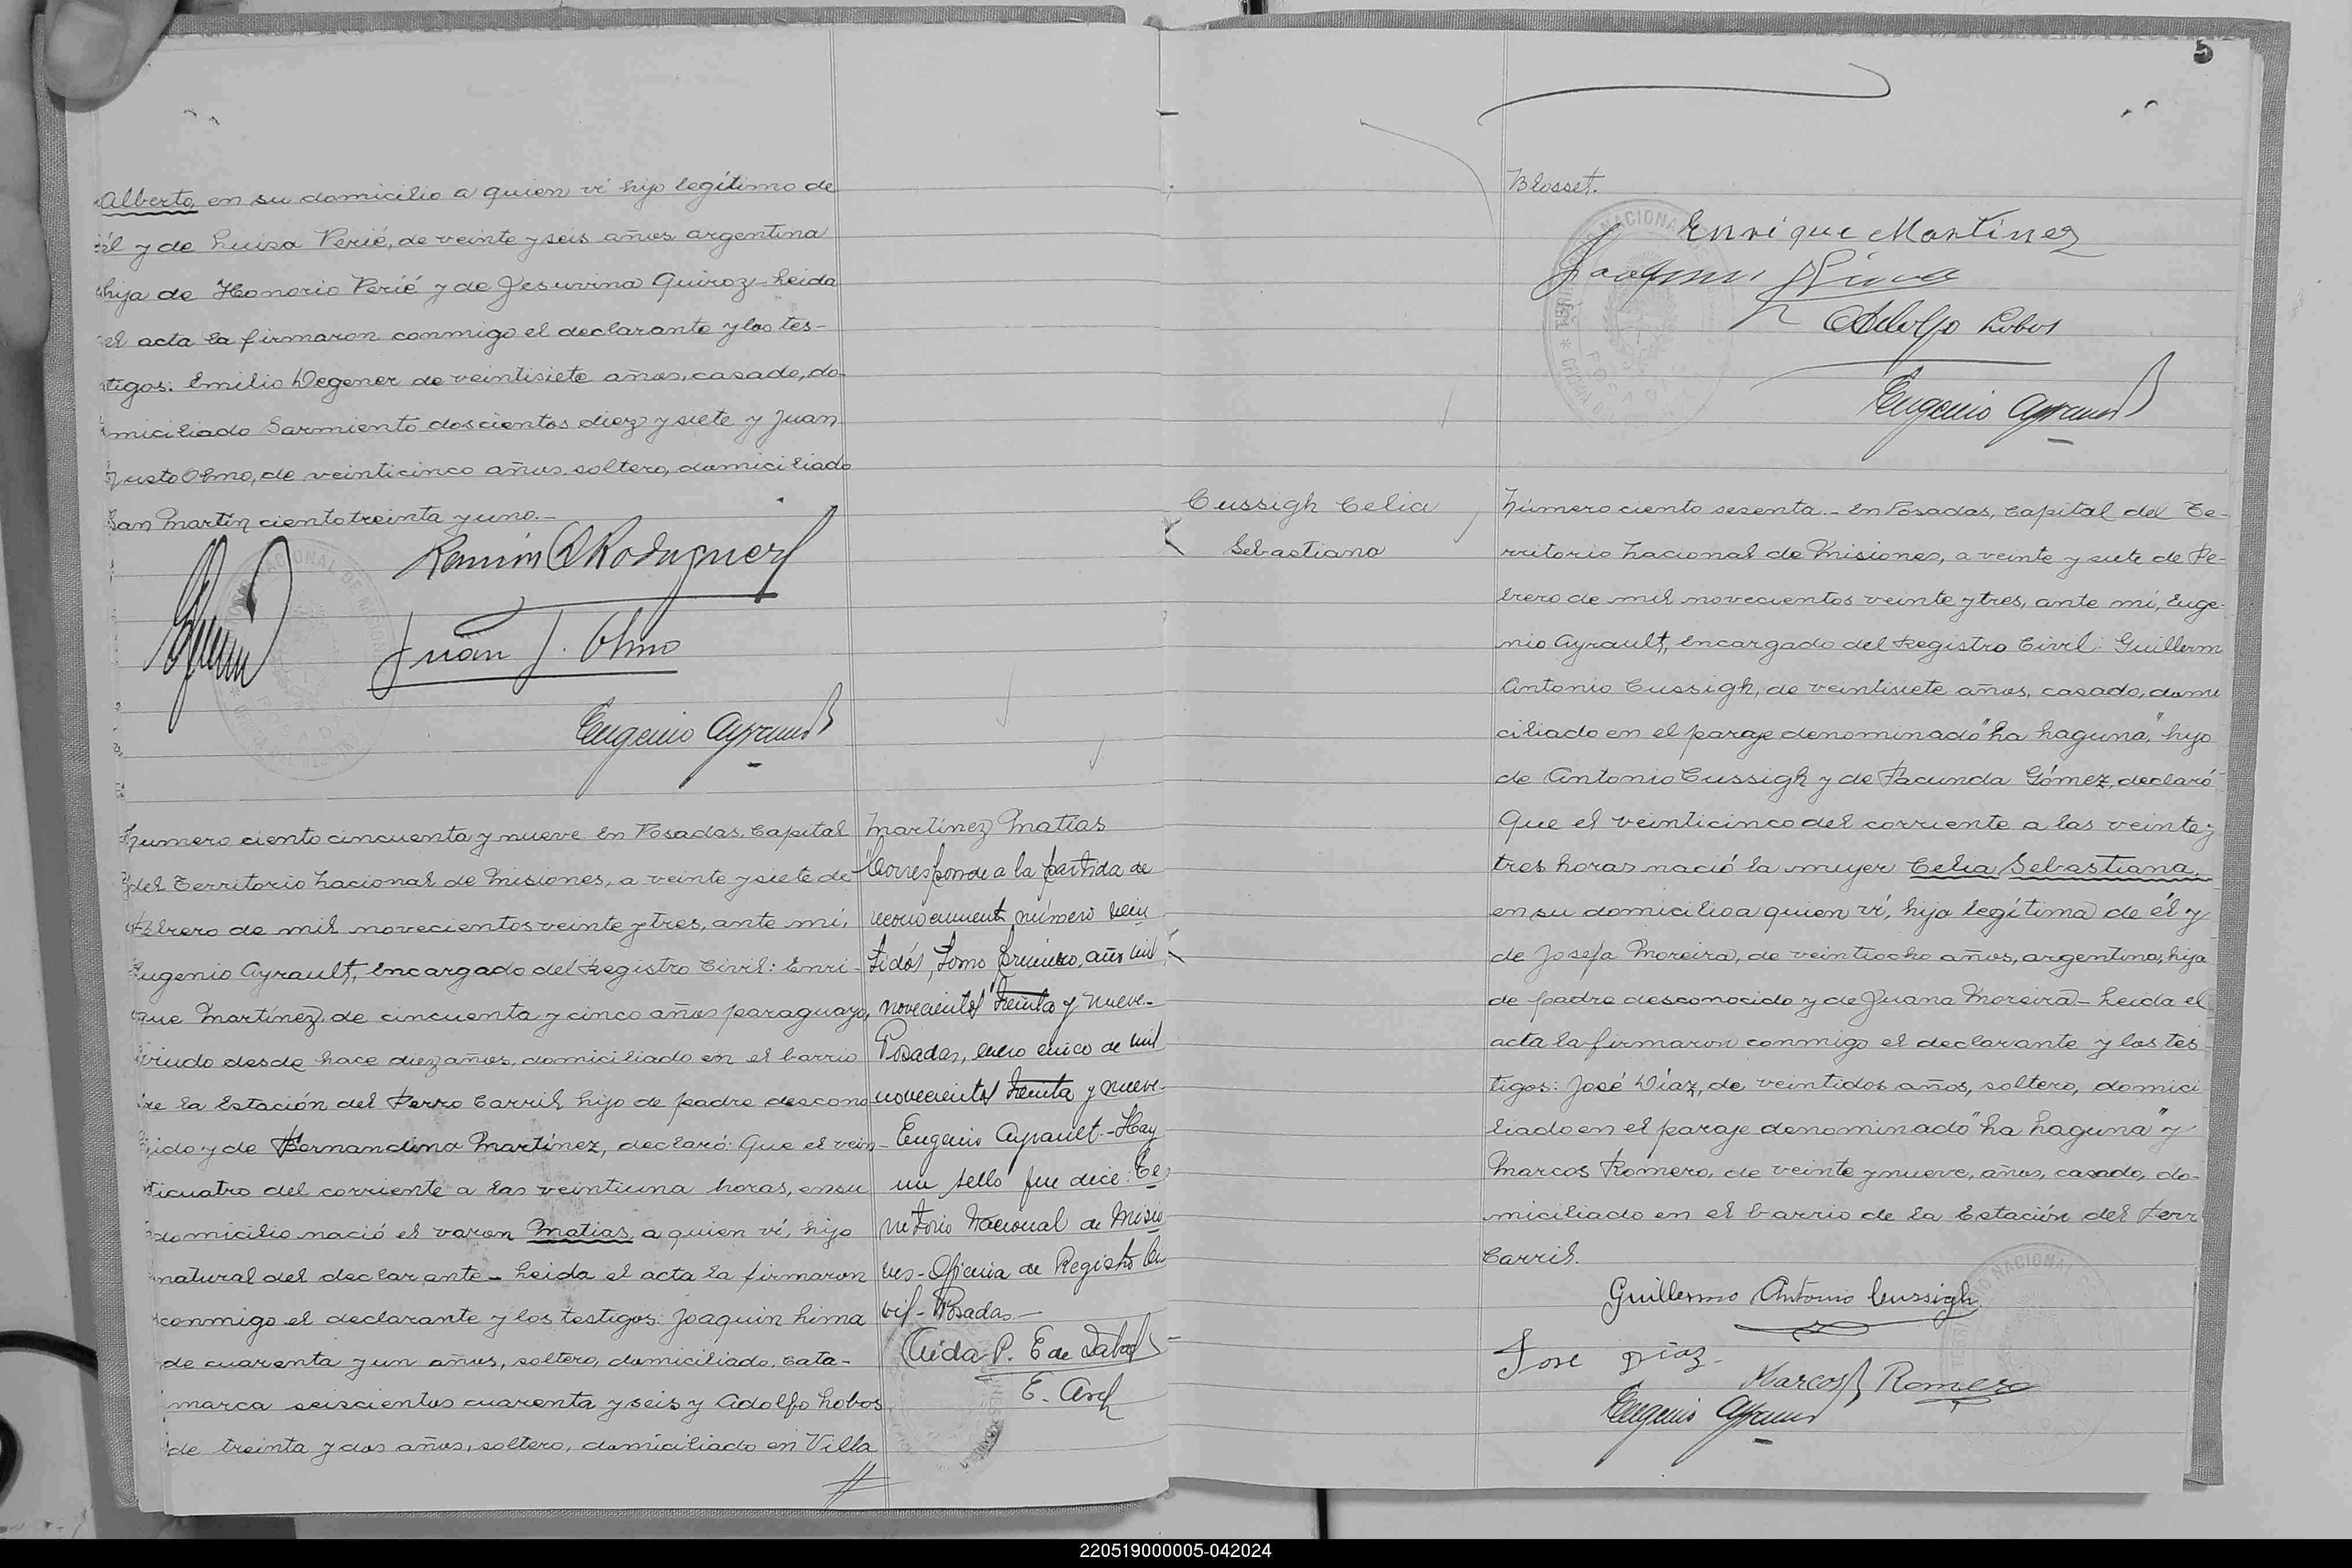 Alberto, en su domicilio a quien ví hijo legítimo de
él y de Luisa Perié, de veinte y seis años argentina
hija de Honorio Perié y de Jesuvina Quiroz - Leida
el acta la firmaron conmigo el declarante y los tes-
tigos: Emilio Degener de veintisiete años, casado, do-
miciliado Sarmiento doscientos diez y siete y Juan
Justo Olmo, de veinticinco años, soltero, domiciliado
San Martín ciento treinta y uno.-
Ramón Rodriguez
Juan J. Olmo
Eugenio Ayrault
Número ciento cincuenta y nueve En Posadas, Capital
del Territorio Nacional de Misiones, a veinte y siete de
Febrero de mil novecientos veinte y tres, ante mí,
Eugenio Ayrault, Encargado del Registro Civil: Enri-
que Martínez, de cincuenta y cinco años paraguayo,
viudo desde hace diez años, domiciliado en el barrio
de la Estación del Ferro Carril hijo de padre descono
cido y de Fernandina Martínez, declaró: Que el vein-
ticuatro del corriente a las veintiuna horas, en su
domicilio nació el varon Matias, a quien ví, hijo
natural del declarante - Leida el acta la firmaron
conmigo el declarante y los testigos: Joaquin Lima
de cuarenta y un años, soltero, domiciliado, Cata-
marca seiscientos cuarenta y seis y Adolfo Lobos
de treinta y dos años, soltero, domiciliado en Villa
Martínez Matias
"Corresponde a la partida de
reconocimiento número vein
tidós, tomo primero, año mil
novecientos treinta y nueve-
Posadas, enero cinco de mil
novecientos treinta y nueve-
Eugenio Ayrault.- Hay
un sello que dice: Te
rritorio Nacional de Misio
nes - Oficina de Registro Ci
vil - Posadas.-
5
Blosset.
Enrique Martínez
Joaquin Lima
Adolfo Lobos
Eugenio Ayrault
Cussigh Celia
Sebastiana
Número ciento sesenta.- En Posadas, Capital del Te-
rritorio Nacional de Misiones, a veinte y siete de Fe-
brero de mil novecientos veinte y tres, ante mí, Euge-
nio Ayrault, Encargado del Registro Civil: Guillerm
Antonio Cussigh, de veintisiete años, casado, domi
ciliado en el paraje denominado "La Laguna," hijo
de Antonio Cussigh y de Facunda Gómez, declaró
Que el veinticinco del corriente a las veinte y
tres horas nació la mujer Celia Sebastiana,
en su domicilio a quien ví, hija legítima de él y
de Josefa Moreira, de veintiocho años, argentina, hija
de padre desconocido y de Juana Moreira - Leida el
acta la firmaron conmigo el declarante y los tes
tigos: José Díaz, de veintidos años, soltero, domici
liado en el paraje denominado "La Laguna" y
Marcos Romero, de veinte y nueve, años, casado, do-
miciliado en el barrio de la Estación del Ferr
Carril.
Guillermo Antonio Cussigh
Jose Diaz.
Marcos Romero
Eugenio Ayrault
220519000005-042024